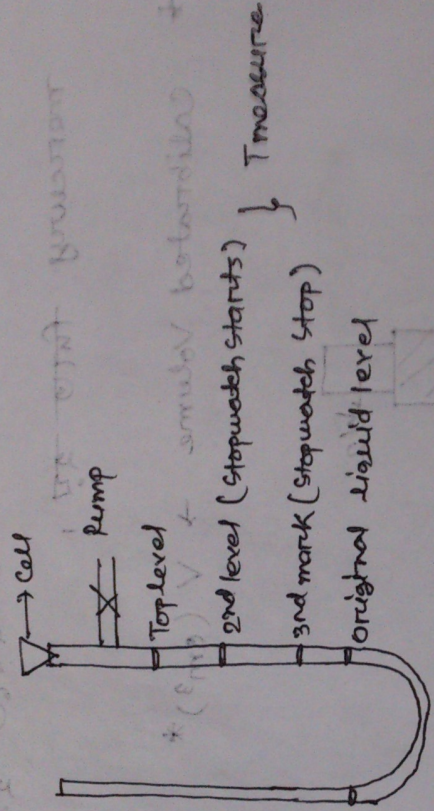 → Cell
Pump
Top level
2nd level (Stopwatch starts)
} Tmeasure
3nd mark (Stopwatch stop)
Original liquid level